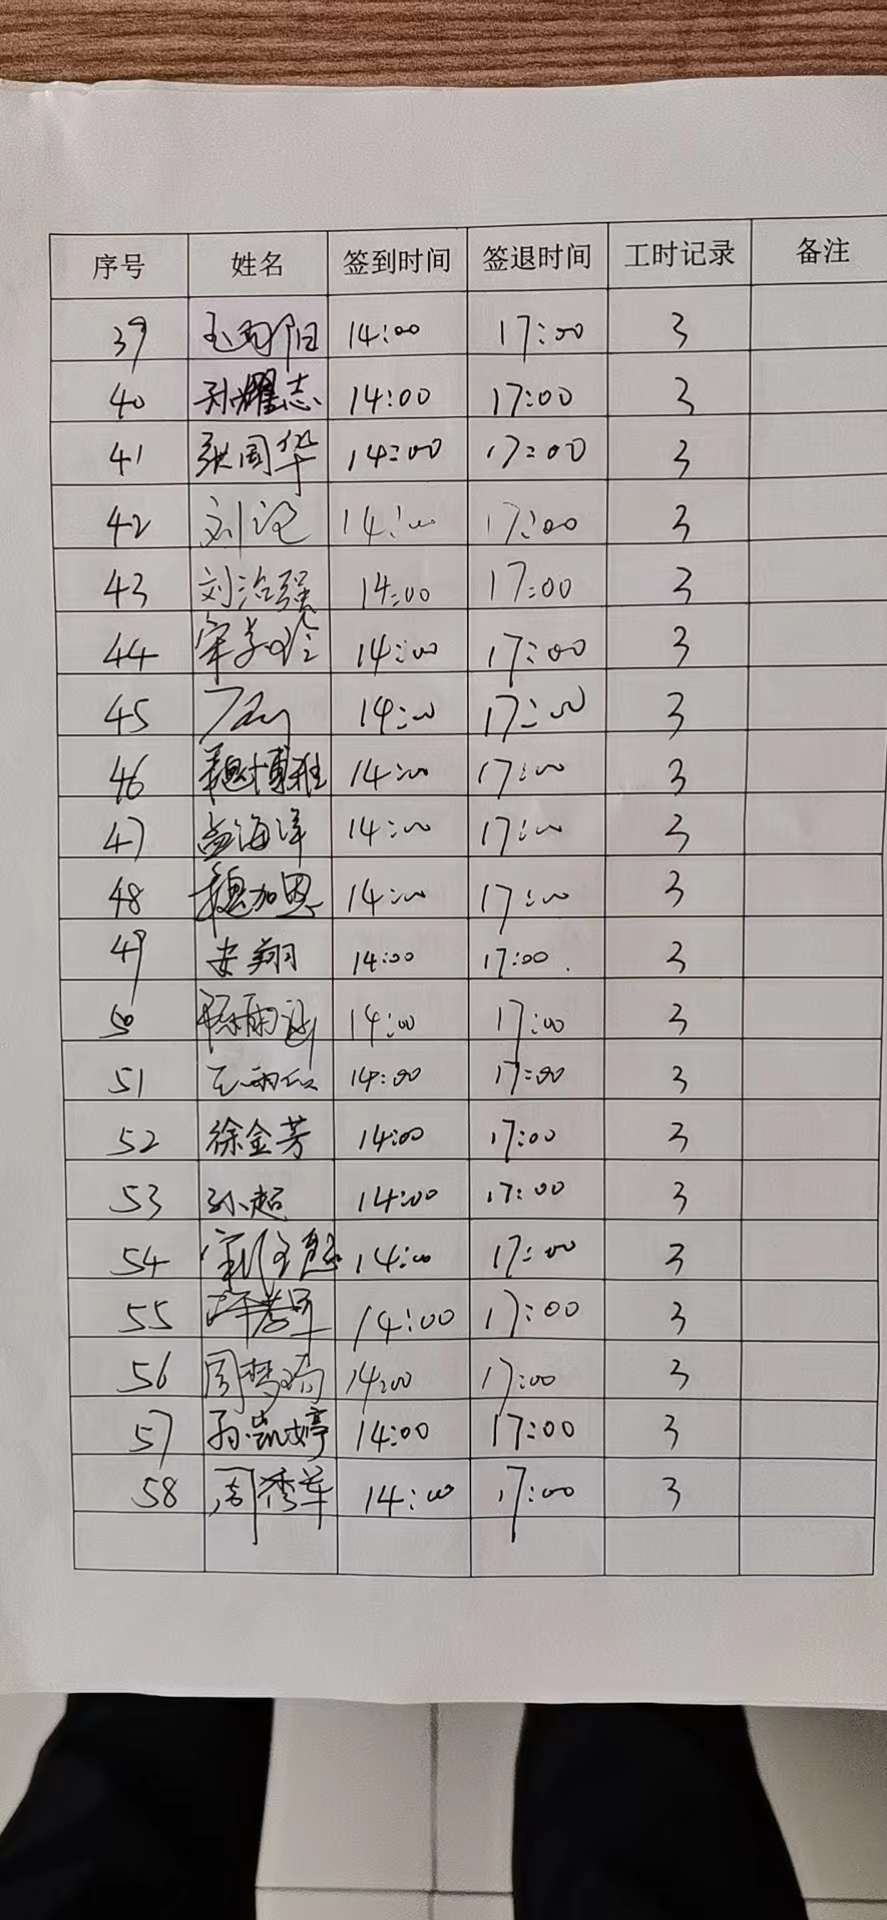 序号 姓名 签到时间 签退时间 工时记录 备注
39 14:00 17:00 3
40 孙耀志 14:00 17:00 3
41 张国华 14:00 17:00 3
42 刘 14:00 17:00 3
43 刘治强 14:00 17:00 3
44 14:00 17:00 3
45 14:00 17:00 3
46 魏博雅 14:00 17:00 3
47 孟海洋 14:00 17:00 3
48 魏加恩 14:00 17:00 3
49 安翔 14:00 17:00
3
50 陈雨涵 14:00 17:00 3
51 14:00 17:00 3
52 徐金芳 14:00 17:00 3
53 孙超 14:00 17:00 3
54 14:00 17:00 3
55 14:00 17:00 3
56 周梦瑶 14:00 17:00 3
57 孙凯婷 14:00 17:00 3
58 周秀苹 14:00 17:00 3